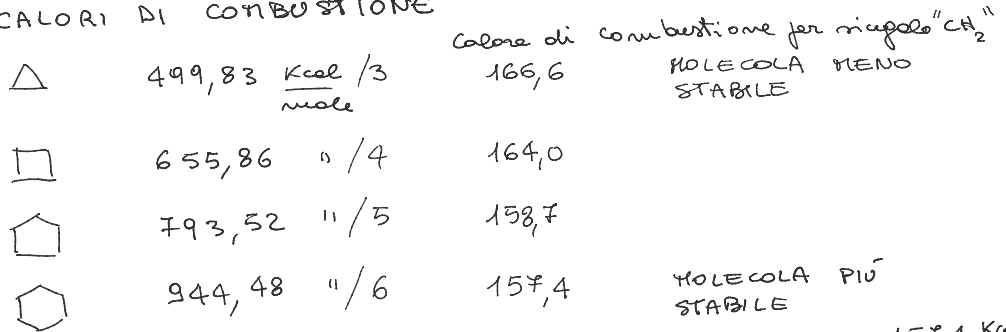 CALORI DI COMBUSTIONE
calore di combustione per singolo "CH2"
499,83 Kcal/mole /3 166,6 MOLECOLA MENO STABILE
655,86 " /4 164,0
793,52 " /5 158,7
944,48 " /6 157,4 MOLECOLA PIÙ STABILE